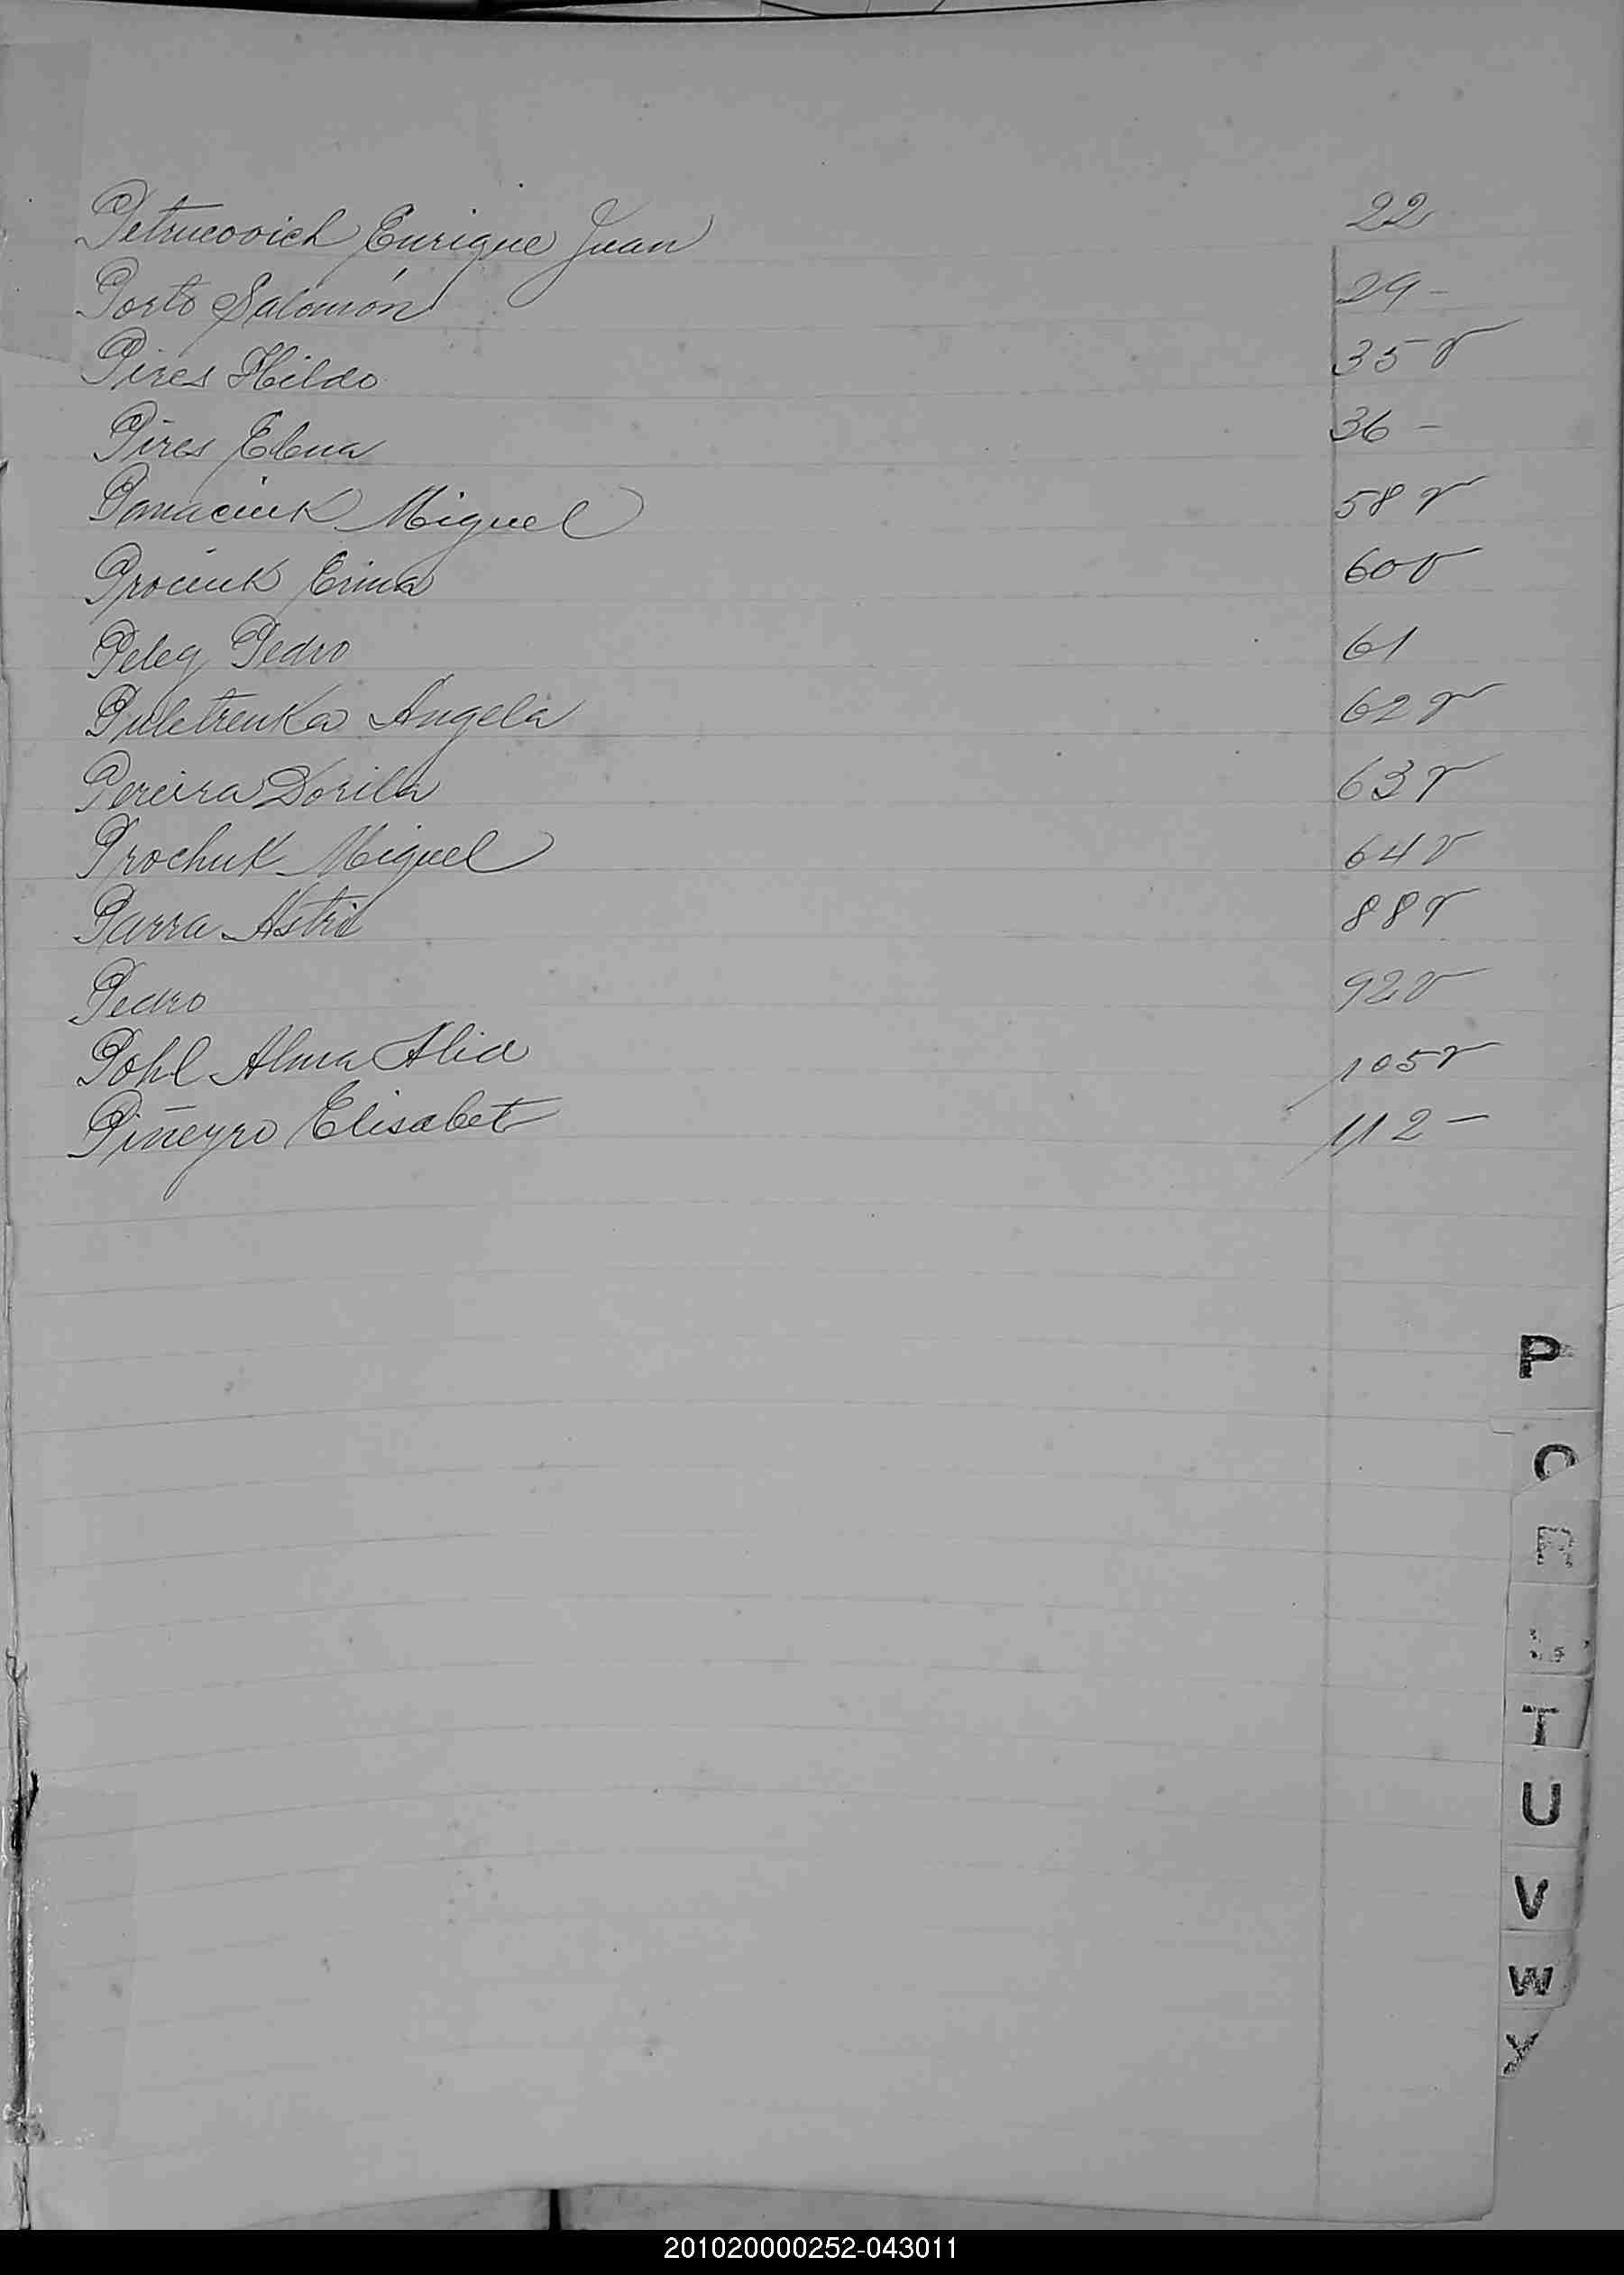 Petrucovich Enrique Juan 22
Porto Salomón 29 -
Pires Hildo 35 v
Pires Elena 36 -
Panaciuk Miguel 58 v
Prociuk Erina 60 v
Peleg Pedro 61
Puletrenka Angela 62 v
Pereira Dorila 63 v
Prochuk Miguel 64 v
Parra Astri 88 v
Pedro 92 v
Pohl Alma Alid 105 v
Piñeyro Elisabet 112 -
P
R
T
U
V
W
201020000252-043011